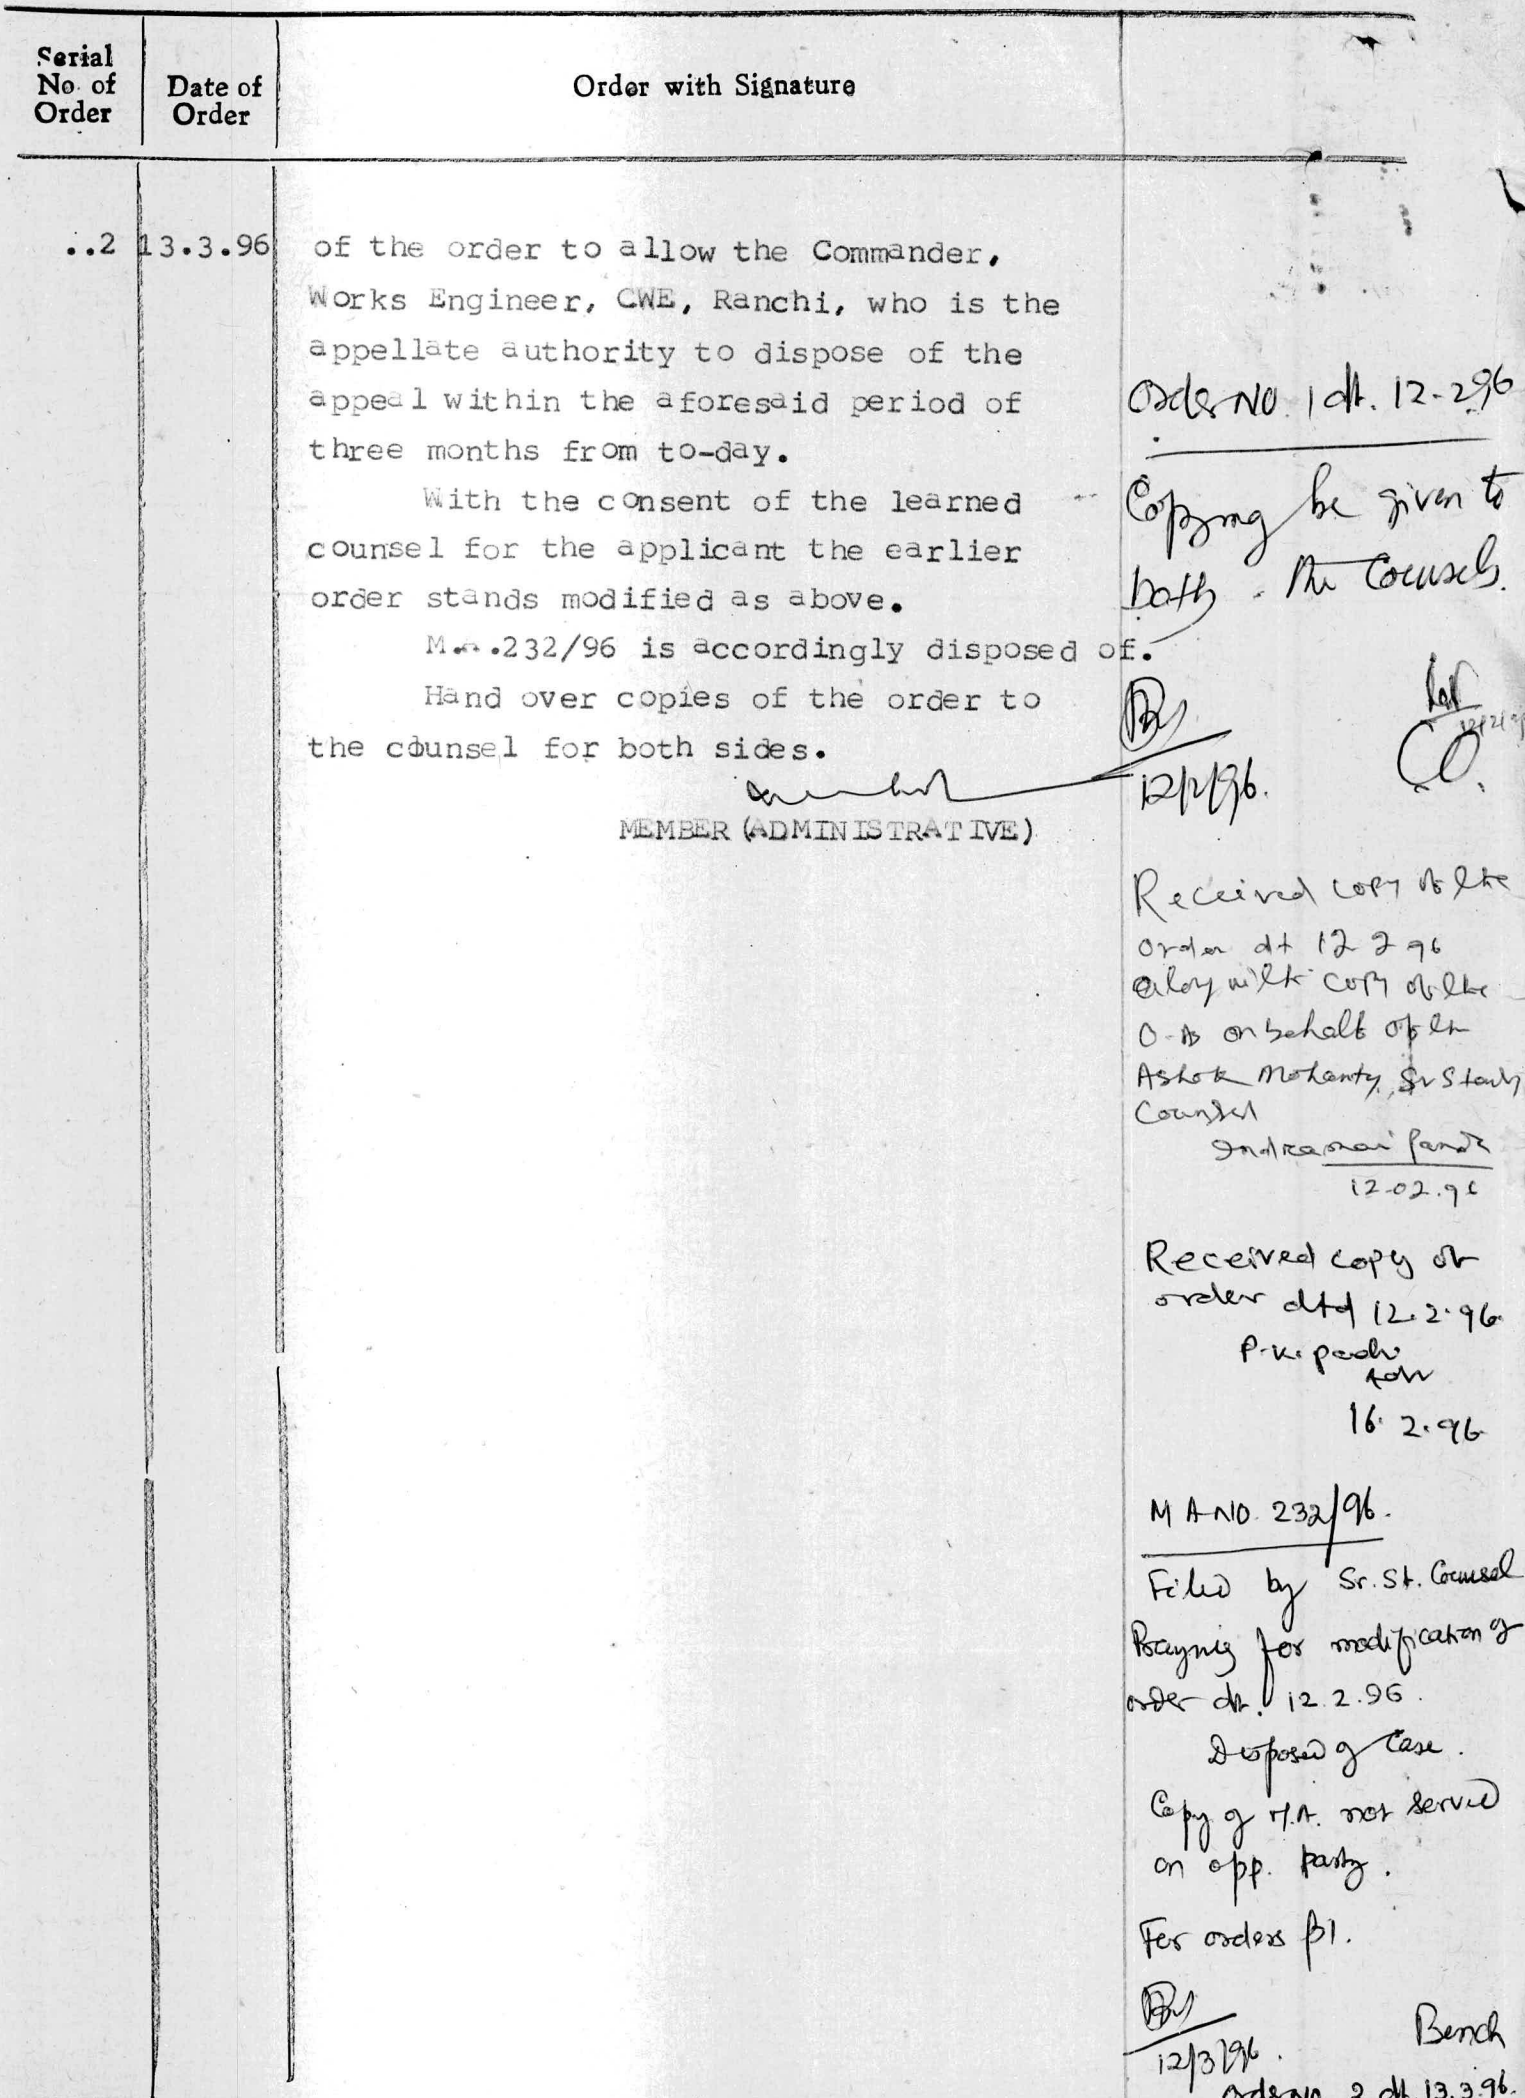 Serial
No. of
Order
Date of
Order
Order with Signature
..2 13.3.96
of the order to allow the Commander,
Works Engineer, CWE, Ranchi, who is the
appellate authority to dispose of the
appeal within the aforesaid period of
three months from to-day.
With the consent of the learned
counsel for the applicant the earlier
order stands modified as above.
M.A.232/96 is accordingly disposed of.
Hand over copies of the order to
the counsel for both sides.
MEMBER (ADMINISTRATIVE)
Order NO. 1 dt. 12-2-96
be given to
both the Counsels.
12/2/96.
12/2/96
CO.
Received copy of the
order dt 12 2 96
along with copy of the
O.A on behalf of
Ashok Mohanty, Sr Standg
Counsel
12.02.96
Received copy of
order dtd 12.2.96
P.K. padhi
Adv
16. 2.96
M A NO. 232/96.
Filed by Sr. St. Counsel
Praying for modification of
order dt. 12.2.96.
Disposed of Case.
Copy of M.A. not served
on opp. party.
For orders pl.
12/3/96.
Bench
Order No. 2 dt 13.3.96.